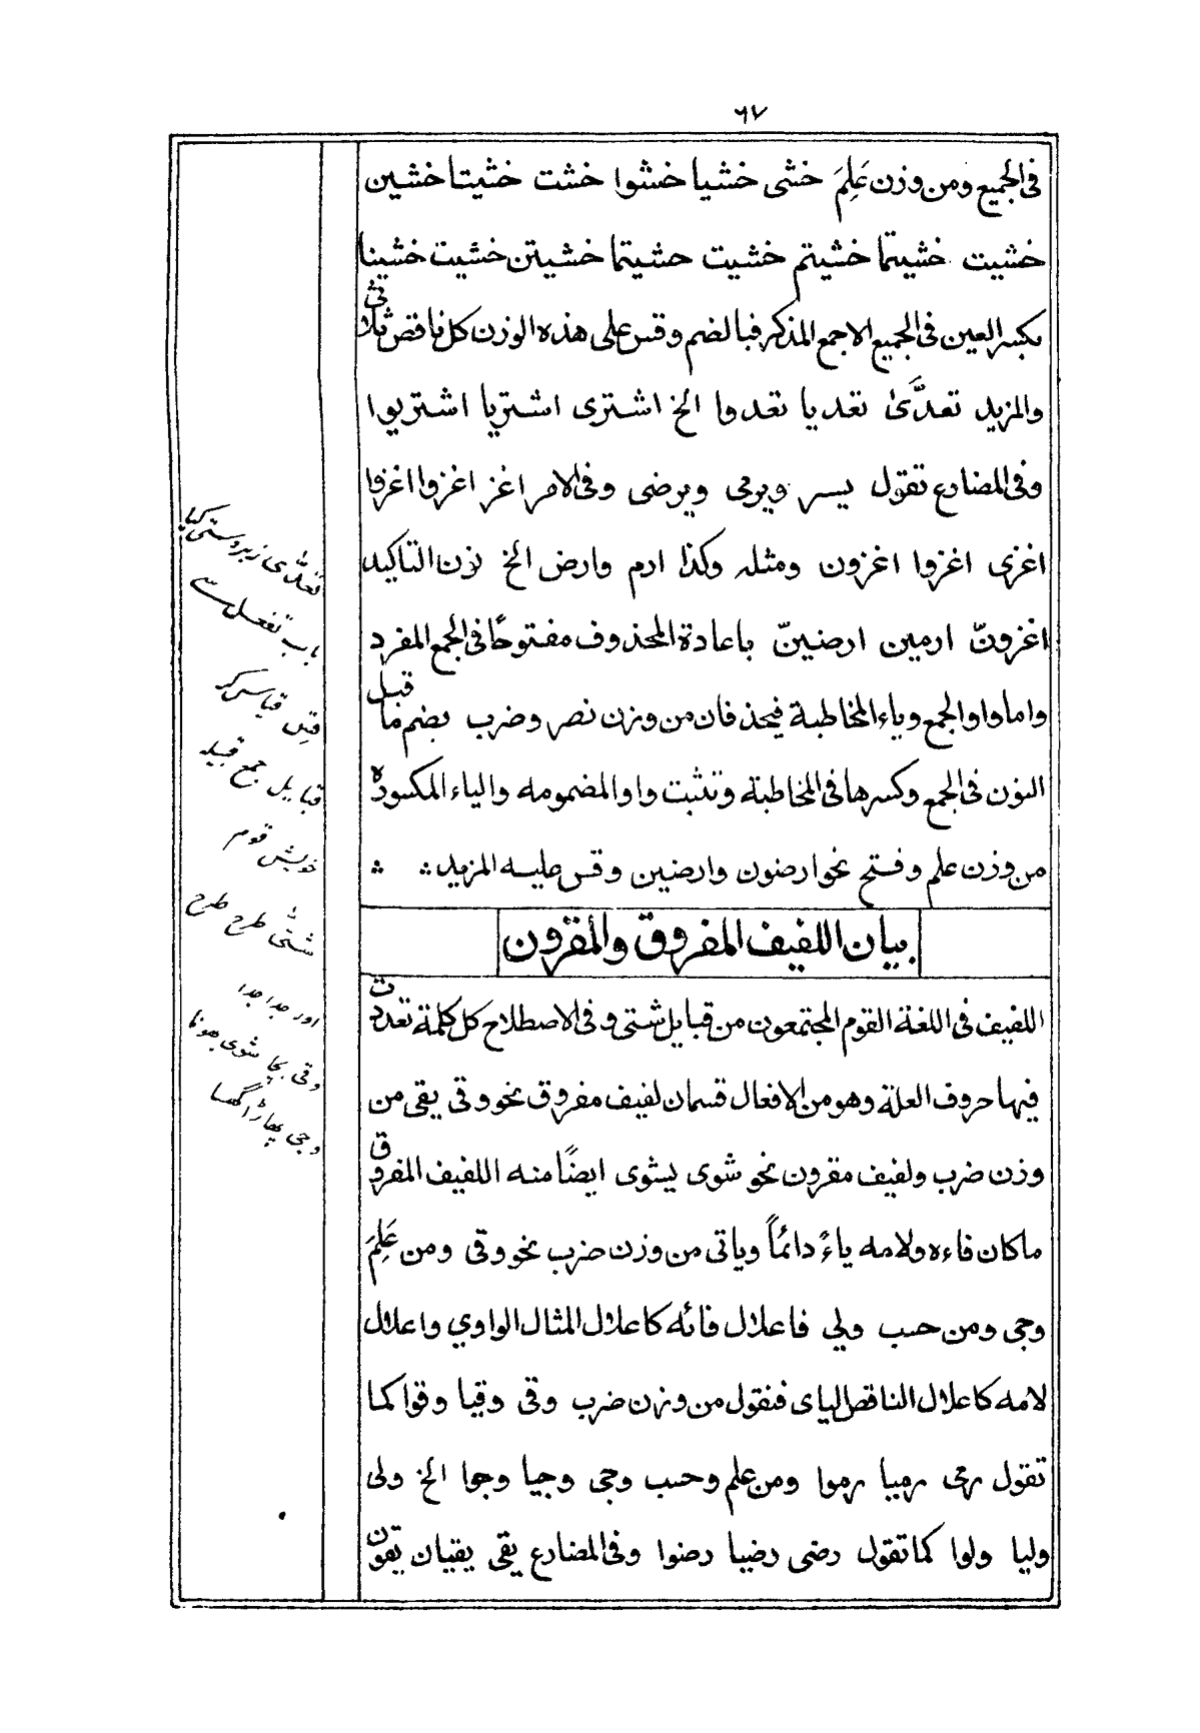 ٦٧
فی الجمیع ومن وزن عَلِمَ خشی خشیا خشوا خشت خشیتا خشین
خشیت خشیتما خشیتم خشیت خشیتما خشیتن خشیت خشینا
بکسر العین فی الجمیع الا جمع المذکر فبالضم وقس علی هذه الوزن کل ناقص ثلاثی
والمزید تعدَّیٰ تعدیا تعدوا الخ اشتری اشتریا اشتریوا
وفی المضارع تقول یسر ویرمی ویرضی وفی الامر اغز اغزوا اغزوا
اغزی اغزوا اغزون ومثله وکذا ارم وارض الخ نزن التاکید
اغزونّ ارمین ارضینّ باعادة المحذوف مفتوحًا فی الجمع المفرد
واما واو الجمع ویاء المخاطبة فیحذ فان من وزن نصر وضرب بضم ما قبل
النون فی الجمع وکسرها فی المخاطبة وتثبت واو المضمومه والیاء المکسورة
من وزن علم وفتح نحو ارضون وارضین وقس علیه المزید
بیان اللفیف المفروق والمقرون
اللفیف فی اللغة القوم المجتمعون من قبایل شتی وفی الاصطلاح کل کلمة تعددت
فیها حروف العلة وهو من الافعال قسمان لفیف مفروق نحو وقی یقی من
وزن ضرب ولفیف مقرون نحو شوی یشوی ایضًا منه اللفیف المفروق
ماکان فاءه ولامه یاءً دائماً ویاتی من وزن ضرب نحو وقی ومن عَلِمَ
وجی ومن حسب ولی فاعلال فائه کاعلال المثال الواوی واعلال
لامه کاعلال الناقص الیای فنقول من وزن ضرب وقی وقیا وقوا کما
تقول رمی رمیا رموا ومن علم وحسب وجی وجیا وجوا الخ ولی
ولیا ولوا کما تقول رضی رضیا رضوا وفی المضارع یقی یقیان یقون
تعدّی زبردستی کیا
باب تفعل سے
قس قیاس کر
قبایل جمع قبیلہ
خویش قوم
شتّٰی طرح طرح
اور جدا جدا
وقی بچا شوی بھونا
وجی